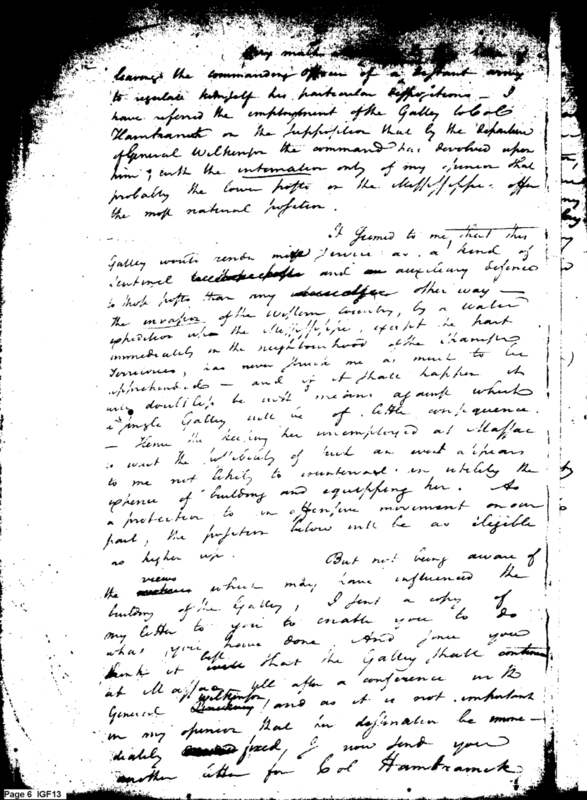 leaving the commanding officer of a distant army
to regulate himself his particular dispositions — I
have referred the employment of the Galley to Col
Hambramck on the Supposition that by the departure
of General Wilkinson the command has devolved upon
him; with the intimation only of my opinion that
probably the lower posts on the Mississippi offer
the most natural position.
It Seemed to me that this
Galley would render more service as a kind of
Sentinel and an auxiliary defence
to those posts than any other way —
the invasion of the Western Country, by a water
expedition up the Mississippi, except the part
immediately in the neighbourhood of the Spanish
Territories, has never struck me as much to be
apprehended — and if it shall happen it
will doubtless be with means against which
a single Galley will be of little consequence.
— Hence the keeping her unemployed at Massac
to wait the possibility of such an event appears
to me not likely to countervail in utility the
expence of building and equipping her. As
a protection to an offensive movement on our
part, the position below will be as eligible
as higher up.
But not being aware of
the views which may have influenced the
building of the Galley, I sent a copy of
my letter to you to enable you to do
what you have done And since you
think it best that the Galley shall continue
at Massac till after a conference with
General Wilkinson, and as it is not important
in my opinion that her destination be imme-
diately fixed, I now send you
another letter for Col Hambramck
Page 6 IGF13